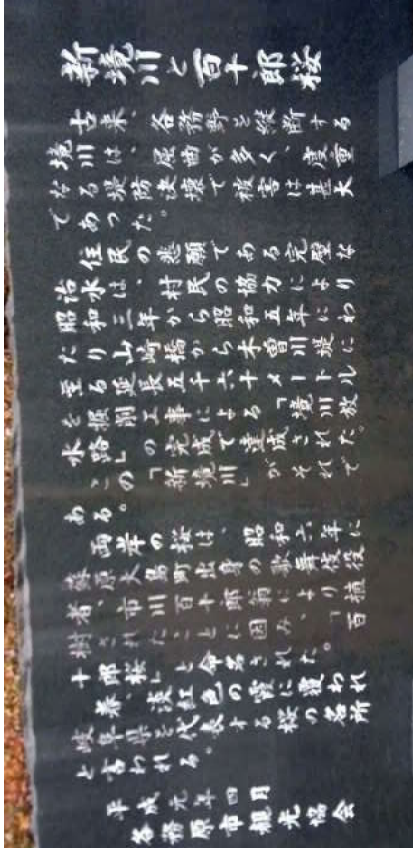 新境川と百十郎桜
古来、各務野を縦断する
境川は、屈曲が多く、度重
なる堤防決壊で被害は甚大
であった。
住民の悲願である完璧な
治水は、村民の協力により
昭和三年から昭和五年にわ
たり山崎橋から木曽川堤に
至る延長五千六十メートル
を掘削工事による「境川放
水路」の完成で達成された。
この「新境川」がそれで
ある。
両岸の桜は、昭和六年に
蘇原大島町出身の歌舞伎役
者、市川百十郎翁により植
樹されたことに因み、「百
十郎桜」と命名された。
春、淡紅色の霞に覆われ
岐阜県を代表する桜の名所
と言われる。
平成元年四月
各務原市観光協会